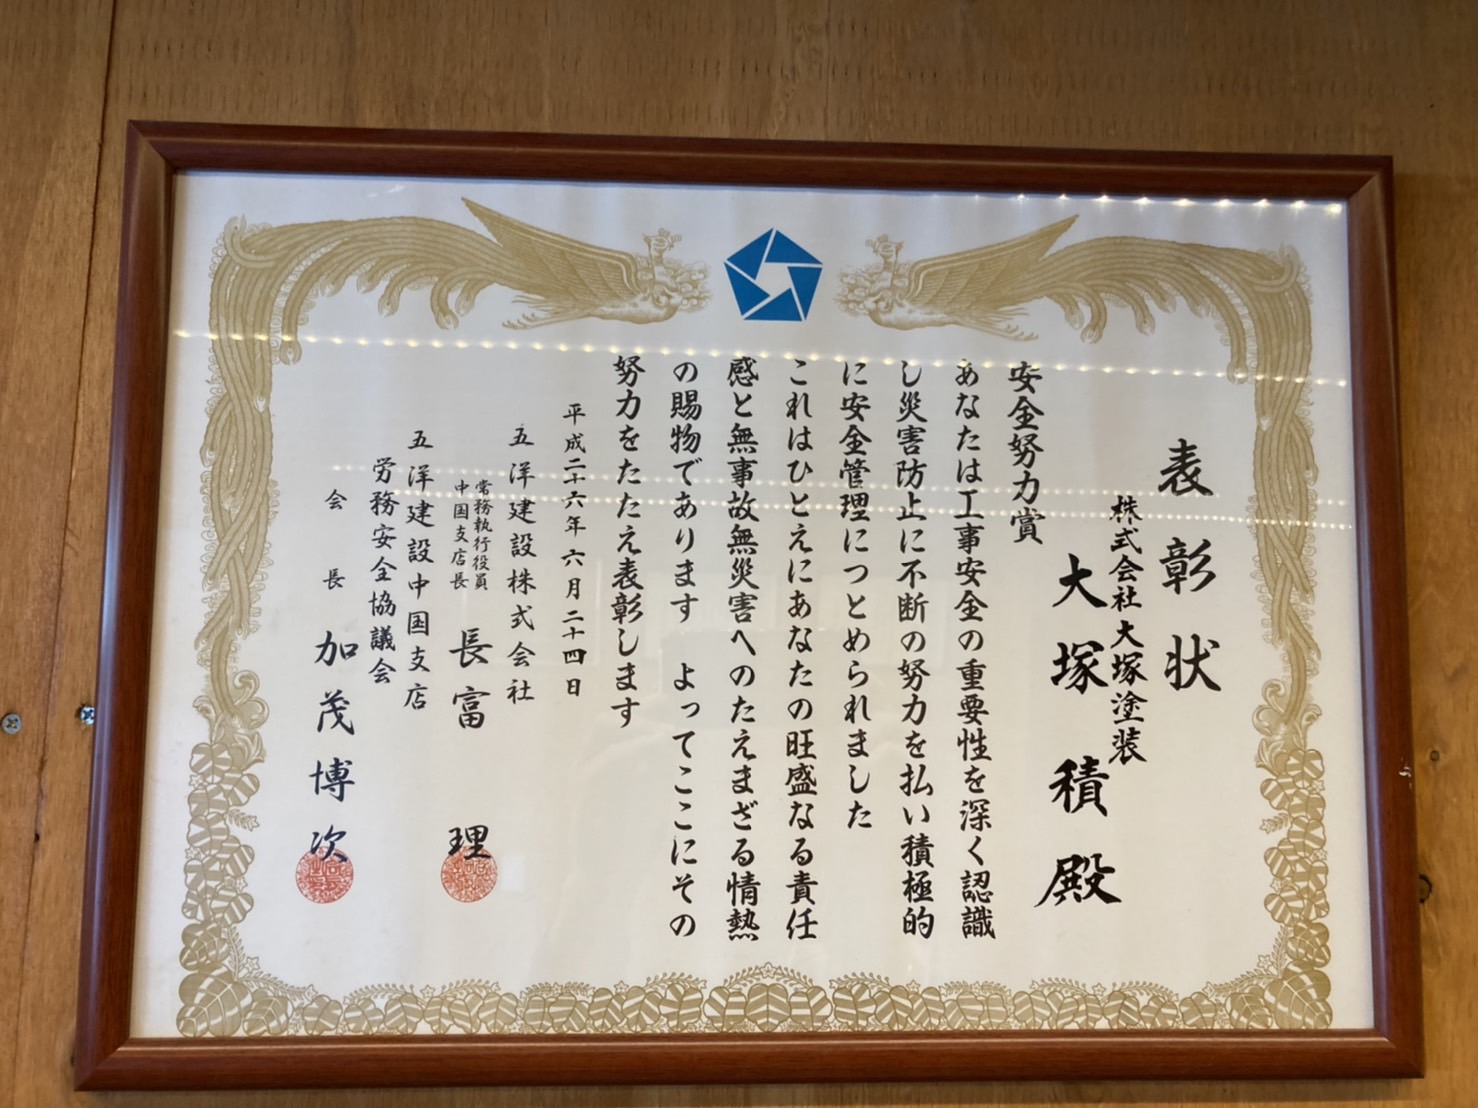 表彰状
株式会社大塚塗装
大塚積殿
安全努力賞
あなたは工事安全の重要性を深く認識
し災害防止に不断の努力を払い積極的
に安全管理につとめられました
これはひとえにあなたの旺盛なる責任
感と無事故無災害へのたえまざる情熱
の賜物であります よってここにその
努力をたたえ表彰します
平成二十六年六月二十四日
五洋建設株式会社
常務執行役員
中国支店長
長富 理
五洋建設中国支店
労務安全協議会
会長 加茂博次